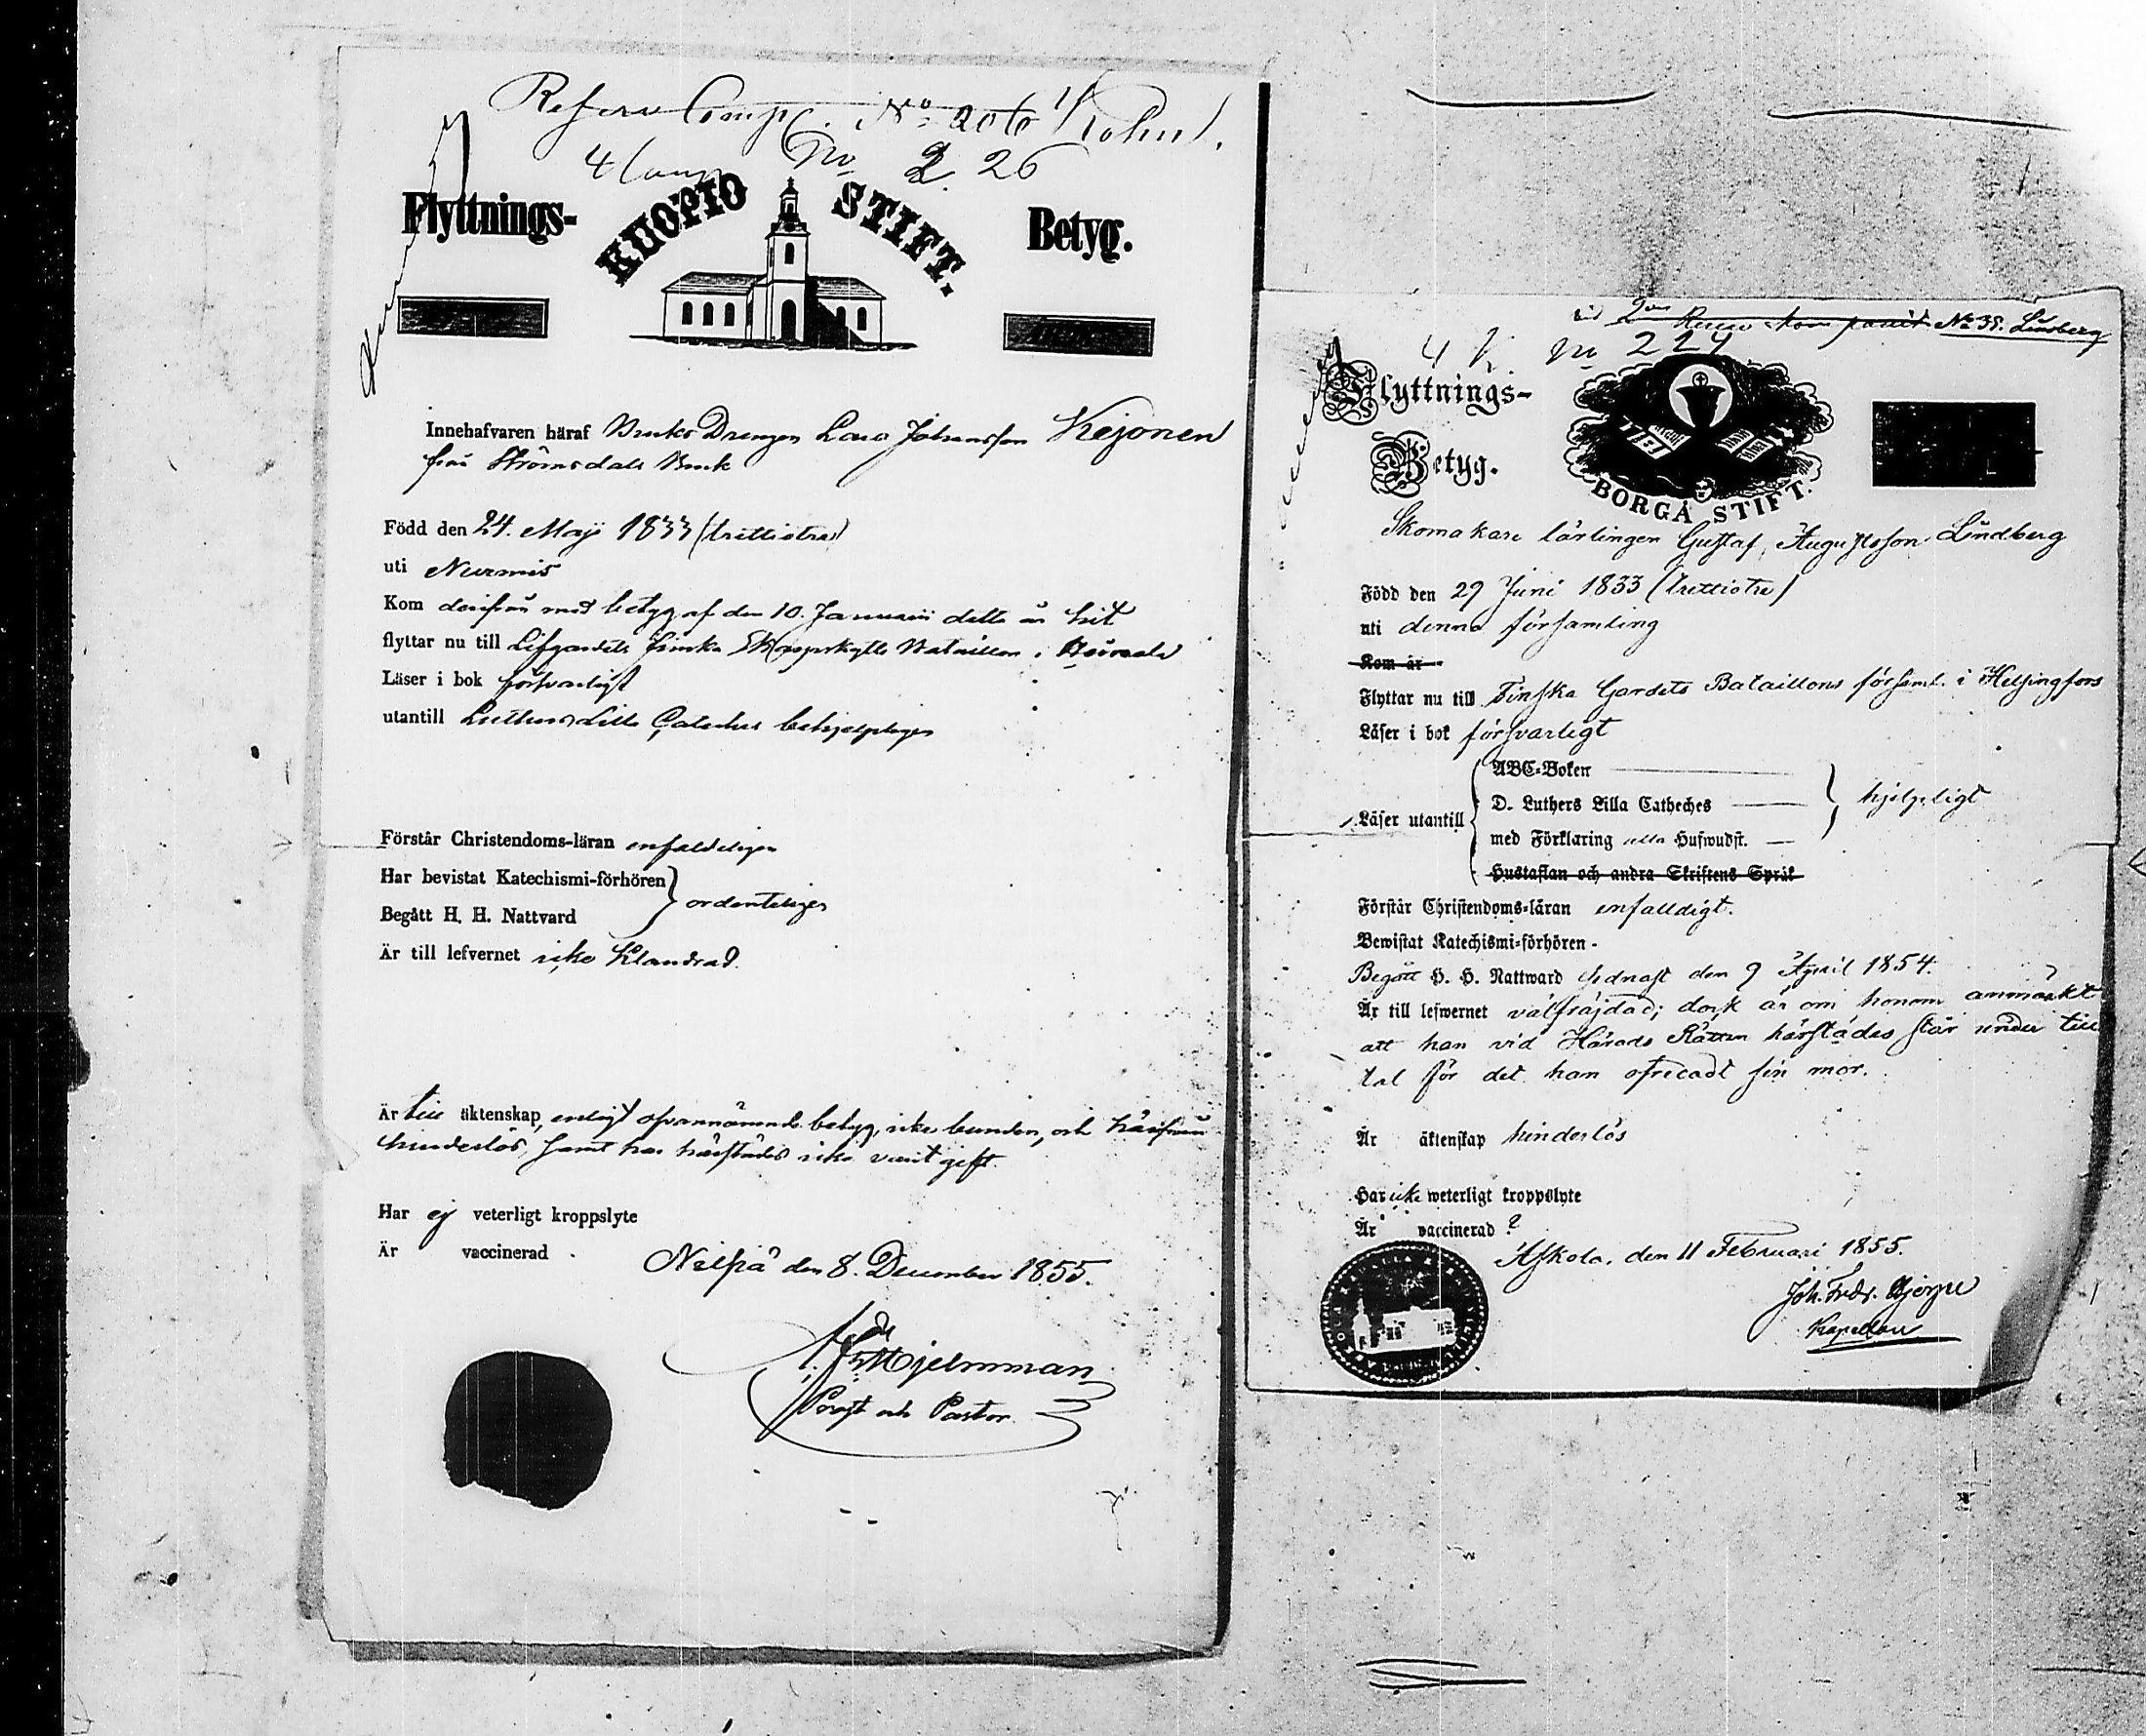 Reserv Comp. No 206
4 Comp No 2 26
Flyttnings- KUOPIO STIFT. Betyg.
Innehafvaren häraf Bruks Drengen Lars Johansson Kejonen
från Strömsdals Bruk
Född den 24. Maji 1833 (trettiotre)
uti Nurmis
Kom derifrån med betyg af den 10. Januarii detta år hit
flyttar nu till Lifgardets Finska Skarpskytte Bataillon i
Läser i bok försvarligt
utantill Luthers Lilla Cateches behjelpligen
Förstår Christendoms-läran enfaldeligen
Har bevistat Katechismi-förhören
ordenteligen
Begått H. H. Nattvard
Är till lefvernet icke klandrad.
Är till äktenskap, enligt ofvannämnde betyg, icke bunden, och härifrån
hinderlös, samt har härstädes icke varit gift.
Har ej veterligt kroppslyte
Är vaccinerad
Nilsiä den 8. December 1855.
Hjelmman
Prost och Pastor
No 35. Lindberg
4 K. No 224
Flyttnings-
Betyg.
BORGÅ STIFT.
Skomakare lärlingen Gustaf Augustsson Lindberg
Född den 29 Juni 1833 (trettiotre)
uti denna församling
Kom år
Flyttar nu till Finska Gardets Bataillons församl. i Helsingfors
Läser i bok försvarligt
ABC-Boken
Läser utantill D. Luthers Lilla Catheches hjelpligt
med Förklaring Hufwudst.
Hustaflan och andra Skriftens Språk
Förstår Christendoms-läran enfalldigt.
Bewistat Katechismi-förhören -
Begått H. H. Nattward sednast den 9 April 1854.
Är till lefwernet välfräjdad; dock är om honom anmärkt
att han vid Härads Rätten härstädes står under till
tal för det han ofredadt sin mor.
Är äktenskap hinderlös
Har icke weterligt kroppslyte
Är vaccinerad ?
Askola, den 11 Februari 1855.
Joh. Fredr.
Kapellan